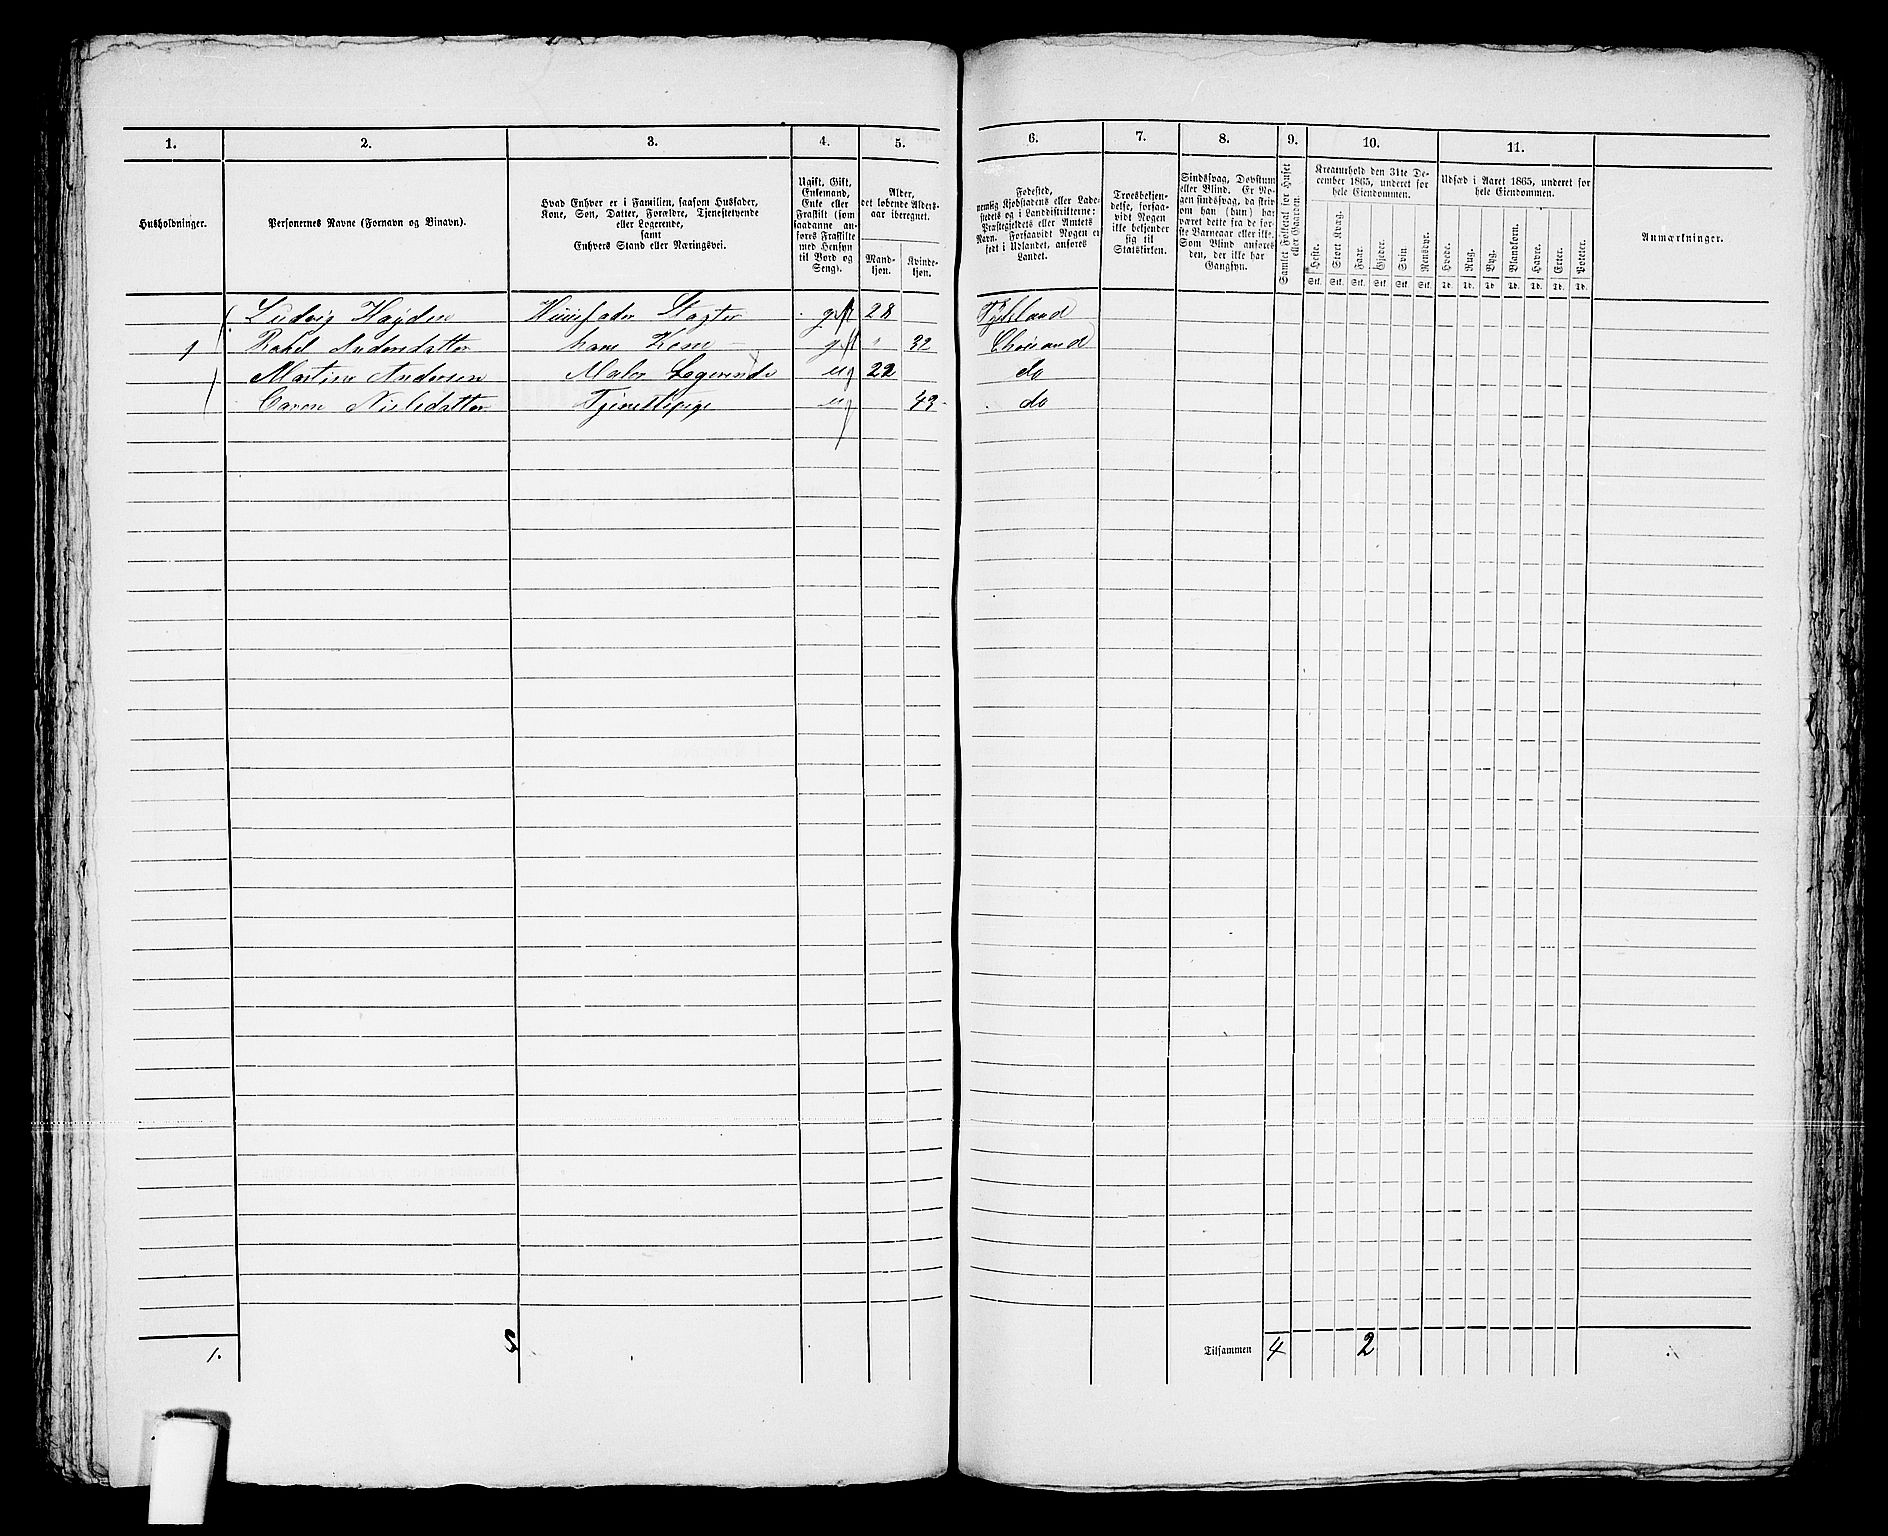 1. 2. 3. 4. 5. 6. 7. 8. 9. 10. 11.
Husholdninger.
Personernes Navne (Fornavn og Binavn).
Hvad Enhver er i Familien, saasom Husfader,
Kone, Søn, Datter, Forældre, Tjenestetyende
eller Logerende,
samt
Enhvers Stand eller Næringsvei.
Ugift, Gift,
Enkemand,
Enke eller
Fraskilt (som
saadanne an-
føres Fraskilte
med Hensyn
til Bord og
Seng).
Alder,
det løbende Alders-
aar iberegnet.
Mand-
kjøn.
Kvinde-
kjøn.
Fødested,
nemlig Kjøbstadens eller Lade-
stedets og i Landdistrikterne:
Præstegjeldets eller Amtets
Navn. Forsaavidt Nogen er
født i Udlandet, anføres
Landet.
Troesbekjen-
delse, forsaa-
vidt Nogen
ikke bekjender
sig til
Statskirken.
Sindssvag, Døvstum
eller Blind. Er No-
gen sindssvag, da skriv
om han (hun) har
været dette fra de før-
ste Barneaar eller ikke.
Som Blind anføres
den, der ikke har
Gangsyn.
Samlet Folketal for Huset
eller Gaarden.
Kreaturhold den 31te De-
cember 1865, underet for
hele Eiendommen.
Heste. Stort Kvæg. Faar. Gjeder. Svin. Rensdyr.
Stk. Stk. Stk. Stk. Stk. Stk.
Udsæd i Aaret 1865, underet for
hele Eiendommen.
Hvede. Rug. Byg. Blandkorn. Havre. Erter. Poteter.
Td. Td. Td. Td. Td. Td. Td.
Anmærkninger.
Ludvig Hayden Huusfader Slagter gift 28 Tydskland
1 Rakel Andersdatter hans Kone gift " 32 Chrisand
Martin Andersen Maler Logerende ug 22 do
Caren Nielsdatter Tjenestepige ug 43 do
1. Tilsammen 4 2